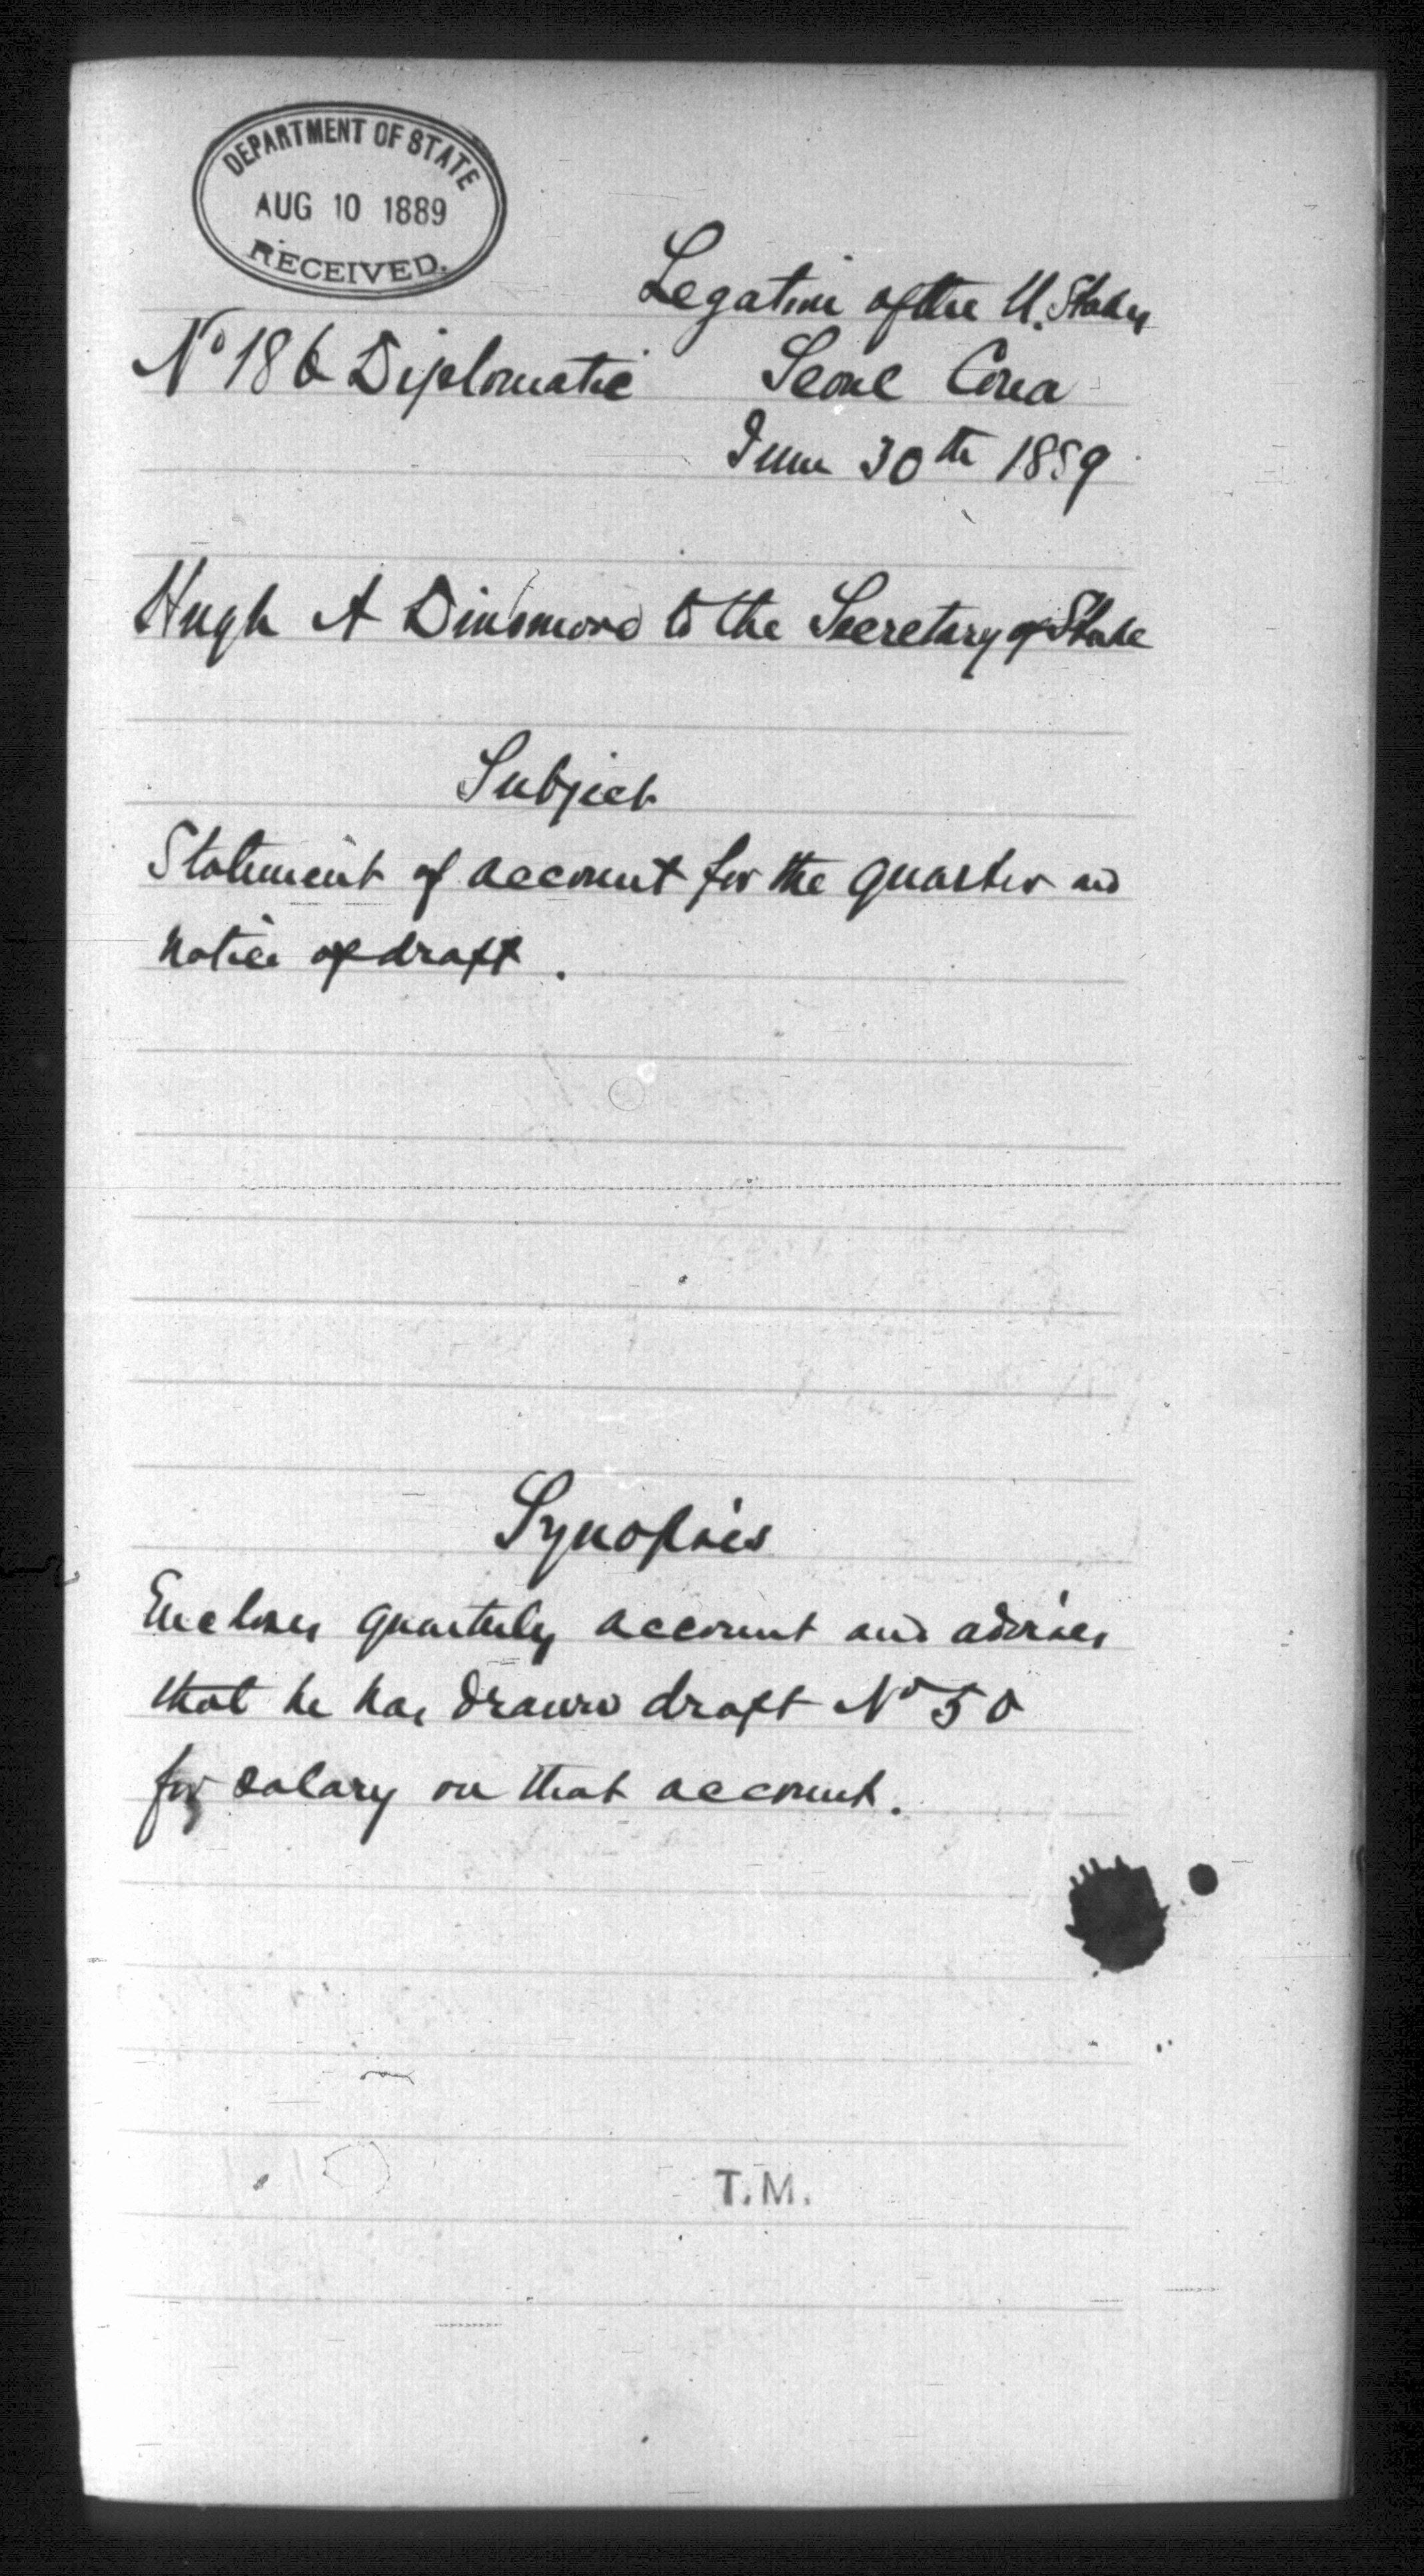 DEPARTMENT OF STATE
AUG 10 1889
RECEIVED.
Legation of the U. States
Nº 186 Diplomatic Seoul Corea
June 30th 1889
Hugh A Dinsmore to the Secretary of State
Subject
Statement of account for the quarter and
notice of draft.
Synopsis
Encloses quarterly account and advises
that he has drawn draft Nº 50
for salary on that account.
T.M.